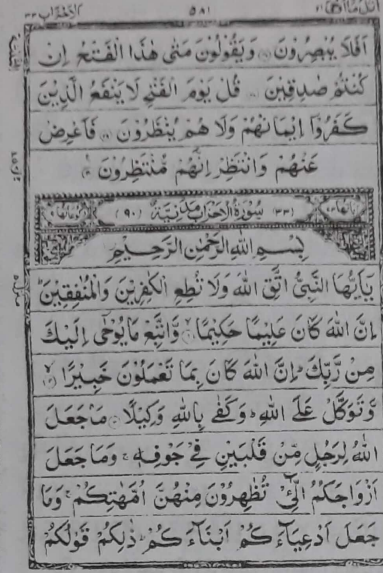 اتل مآ اوحی ۲۱ ۵۸۱ الاحزاب ۳۳
اَفَلَا يُبْصِرُوْنَ وَيَقُوْلُوْنَ مَتٰى هٰذَا الْفَتْحُ اِنْ
كُنْتُمْ صٰدِقِيْنَ قُلْ يَوْمَ الْفَتْحِ لَا يَنْفَعُ الَّذِيْنَ
كَفَرُوْٓا اِيْمَانُهُمْ وَلَا هُمْ يُنْظَرُوْنَ فَاَعْرِضْ
عَنْهُمْ وَانْتَظِرْ اِنَّهُمْ مُّنْتَظِرُوْنَ
(۳۳) سُوْرَةُ الْاَحْزَابِ مَدَنِيَّةٌ (۹۰)
بِسْمِ اللّٰهِ الرَّحْمٰنِ الرَّحِيْمِ
يٰٓاَيُّهَا النَّبِيُّ اتَّقِ اللّٰهَ وَلَا تُطِعِ الْكٰفِرِيْنَ وَالْمُنٰفِقِيْنَ
اِنَّ اللّٰهَ كَانَ عَلِيْمًا حَكِيْمًا وَّاتَّبِعْ مَا يُوْحٰٓى اِلَيْكَ
مِنْ رَّبِّكَ اِنَّ اللّٰهَ كَانَ بِمَا تَعْمَلُوْنَ خَبِيْرًا
وَّتَوَكَّلْ عَلَى اللّٰهِ وَكَفٰى بِاللّٰهِ وَكِيْلًا مَا جَعَلَ
اللّٰهُ لِرَجُلٍ مِّنْ قَلْبَيْنِ فِيْ جَوْفِهٖ وَمَا جَعَلَ
اَزْوَاجَكُمُ الّٰٓـِٔيْ تُظٰهِرُوْنَ مِنْهُنَّ اُمَّهٰتِكُمْ وَمَا
جَعَلَ اَدْعِيَآءَكُمْ اَبْنَآءَكُمْ ذٰلِكُمْ قَوْلُكُمْ